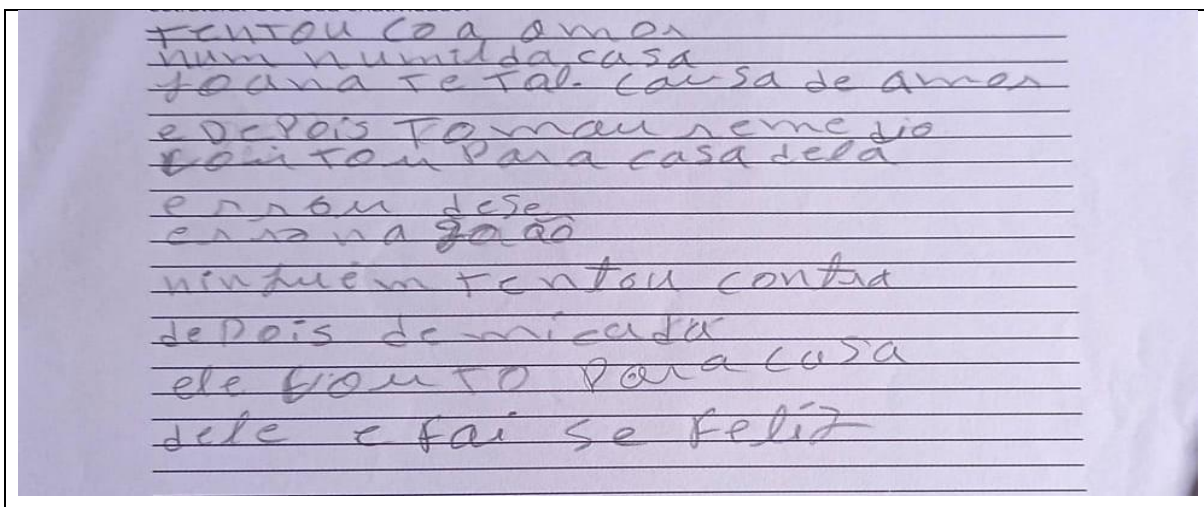 tentou co a amor
num numilda casa
Joana te tal. causa de amor
e Depois Tomau remedio
voutou Para casa dela
errou dese
erro na
ninguém tentou contra
depois de micada
ele vouto para casa
dele e fai se feliz